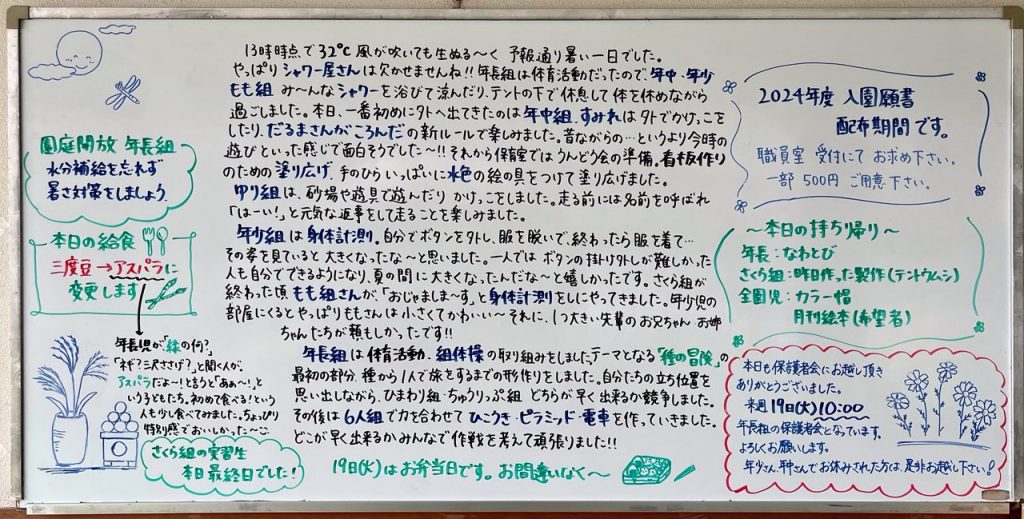 13時時点で32℃ 風が吹いても生ぬる〜く 予報通り暑い一日でした。
やっぱりシャワー屋さんは欠かせませんね!! 年長組は体育活動だったので、年中・年少
もも組 み〜んなシャワーを浴びて涼んだり、テントの下で休息して体を休めながら
過ごしました。本日、一番初めに外へ出てきたのは年中組、すみれは外でかけっこを
したり、だるまさんがころんだの新ルールで楽しみました。昔ながらの…というより今時の
遊びといった感じで面白そうでした〜!! それから保育室ではうんどう会の準備。看板作り
のための塗り広げ、手のひらいっぱいに水色の絵の具をつけて塗り広げました。
ゆり組は、砂場や遊具で遊んだり かけっこをしました。走る前には名前を呼ばれ
「はーい!」と元気な返事をして走ることを楽しみました。
年少組は身体計測。自分でボタンを外し、服を脱いで、終わったら服を着て…
その姿を見ていると 大きくなったな〜と思いました。一人では ボタンの掛け外しが難しかった
人も自分でできるようになり、夏の間に大きくなったんだな〜と嬉しかったです。さくら組が
終わった頃 もも組さんが、「おじゃましま〜す」と身体計測をしにやってきました。年少児の
部屋にくるとやっぱりももさんは小さくてかわいい〜それに、1つ大きい先輩のお兄ちゃん・お姉
ちゃんたちが頼もしかったです!!
年長組は体育活動、組体操の取り組みをしました。テーマとなる「種の冒険」の
最初の部分、種から1人で旅をするまでの形作りをしました。自分たちの立ち位置を
思い出しながら、ひまわり組・ちゅうりっぷ組 どちらが早く出来るか競争しました。
その後は6人組で力を合わせてひこうき・ピラミッド・電車を作っていきました。
どこが早く出来るかみんなで作戦を考えて頑張りました!!
19日(火)はお弁当日です。お間違いなく〜
園庭開放 年長組
水分補給を忘れず
暑さ対策をしましょう
本日の給食
三度豆→アスパラに
変更します
年長児が「緑の何?」
「ネギ?三沢ささげ?」と聞く人が、
アスパラだよー!と言うと「あぁ〜!」と
いう子どもたち。初めて食べる!という
人も少し食べてみました。ちょっぴり
特別感でおいしかった〜
さくら組の実習生
本日最終日でした!
2024年度 入園願書
配布期間です。
職員室 受付にて お求め下さい。
一部 500円 ご用意下さい。
〜本日の持ち帰り〜
年長:なわとび
さくら組:昨日作った製作(テントウムシ)
全園児:カラー帽
月刊絵本(希望者)
本日も保護者会にお越し頂き
ありがとうございました。
来週19日(火)10:00〜
年長組の保護者会となっています。
よろしくお願いします。
年少さん、年中さんでお休みされた方は、是非お越し下さい!